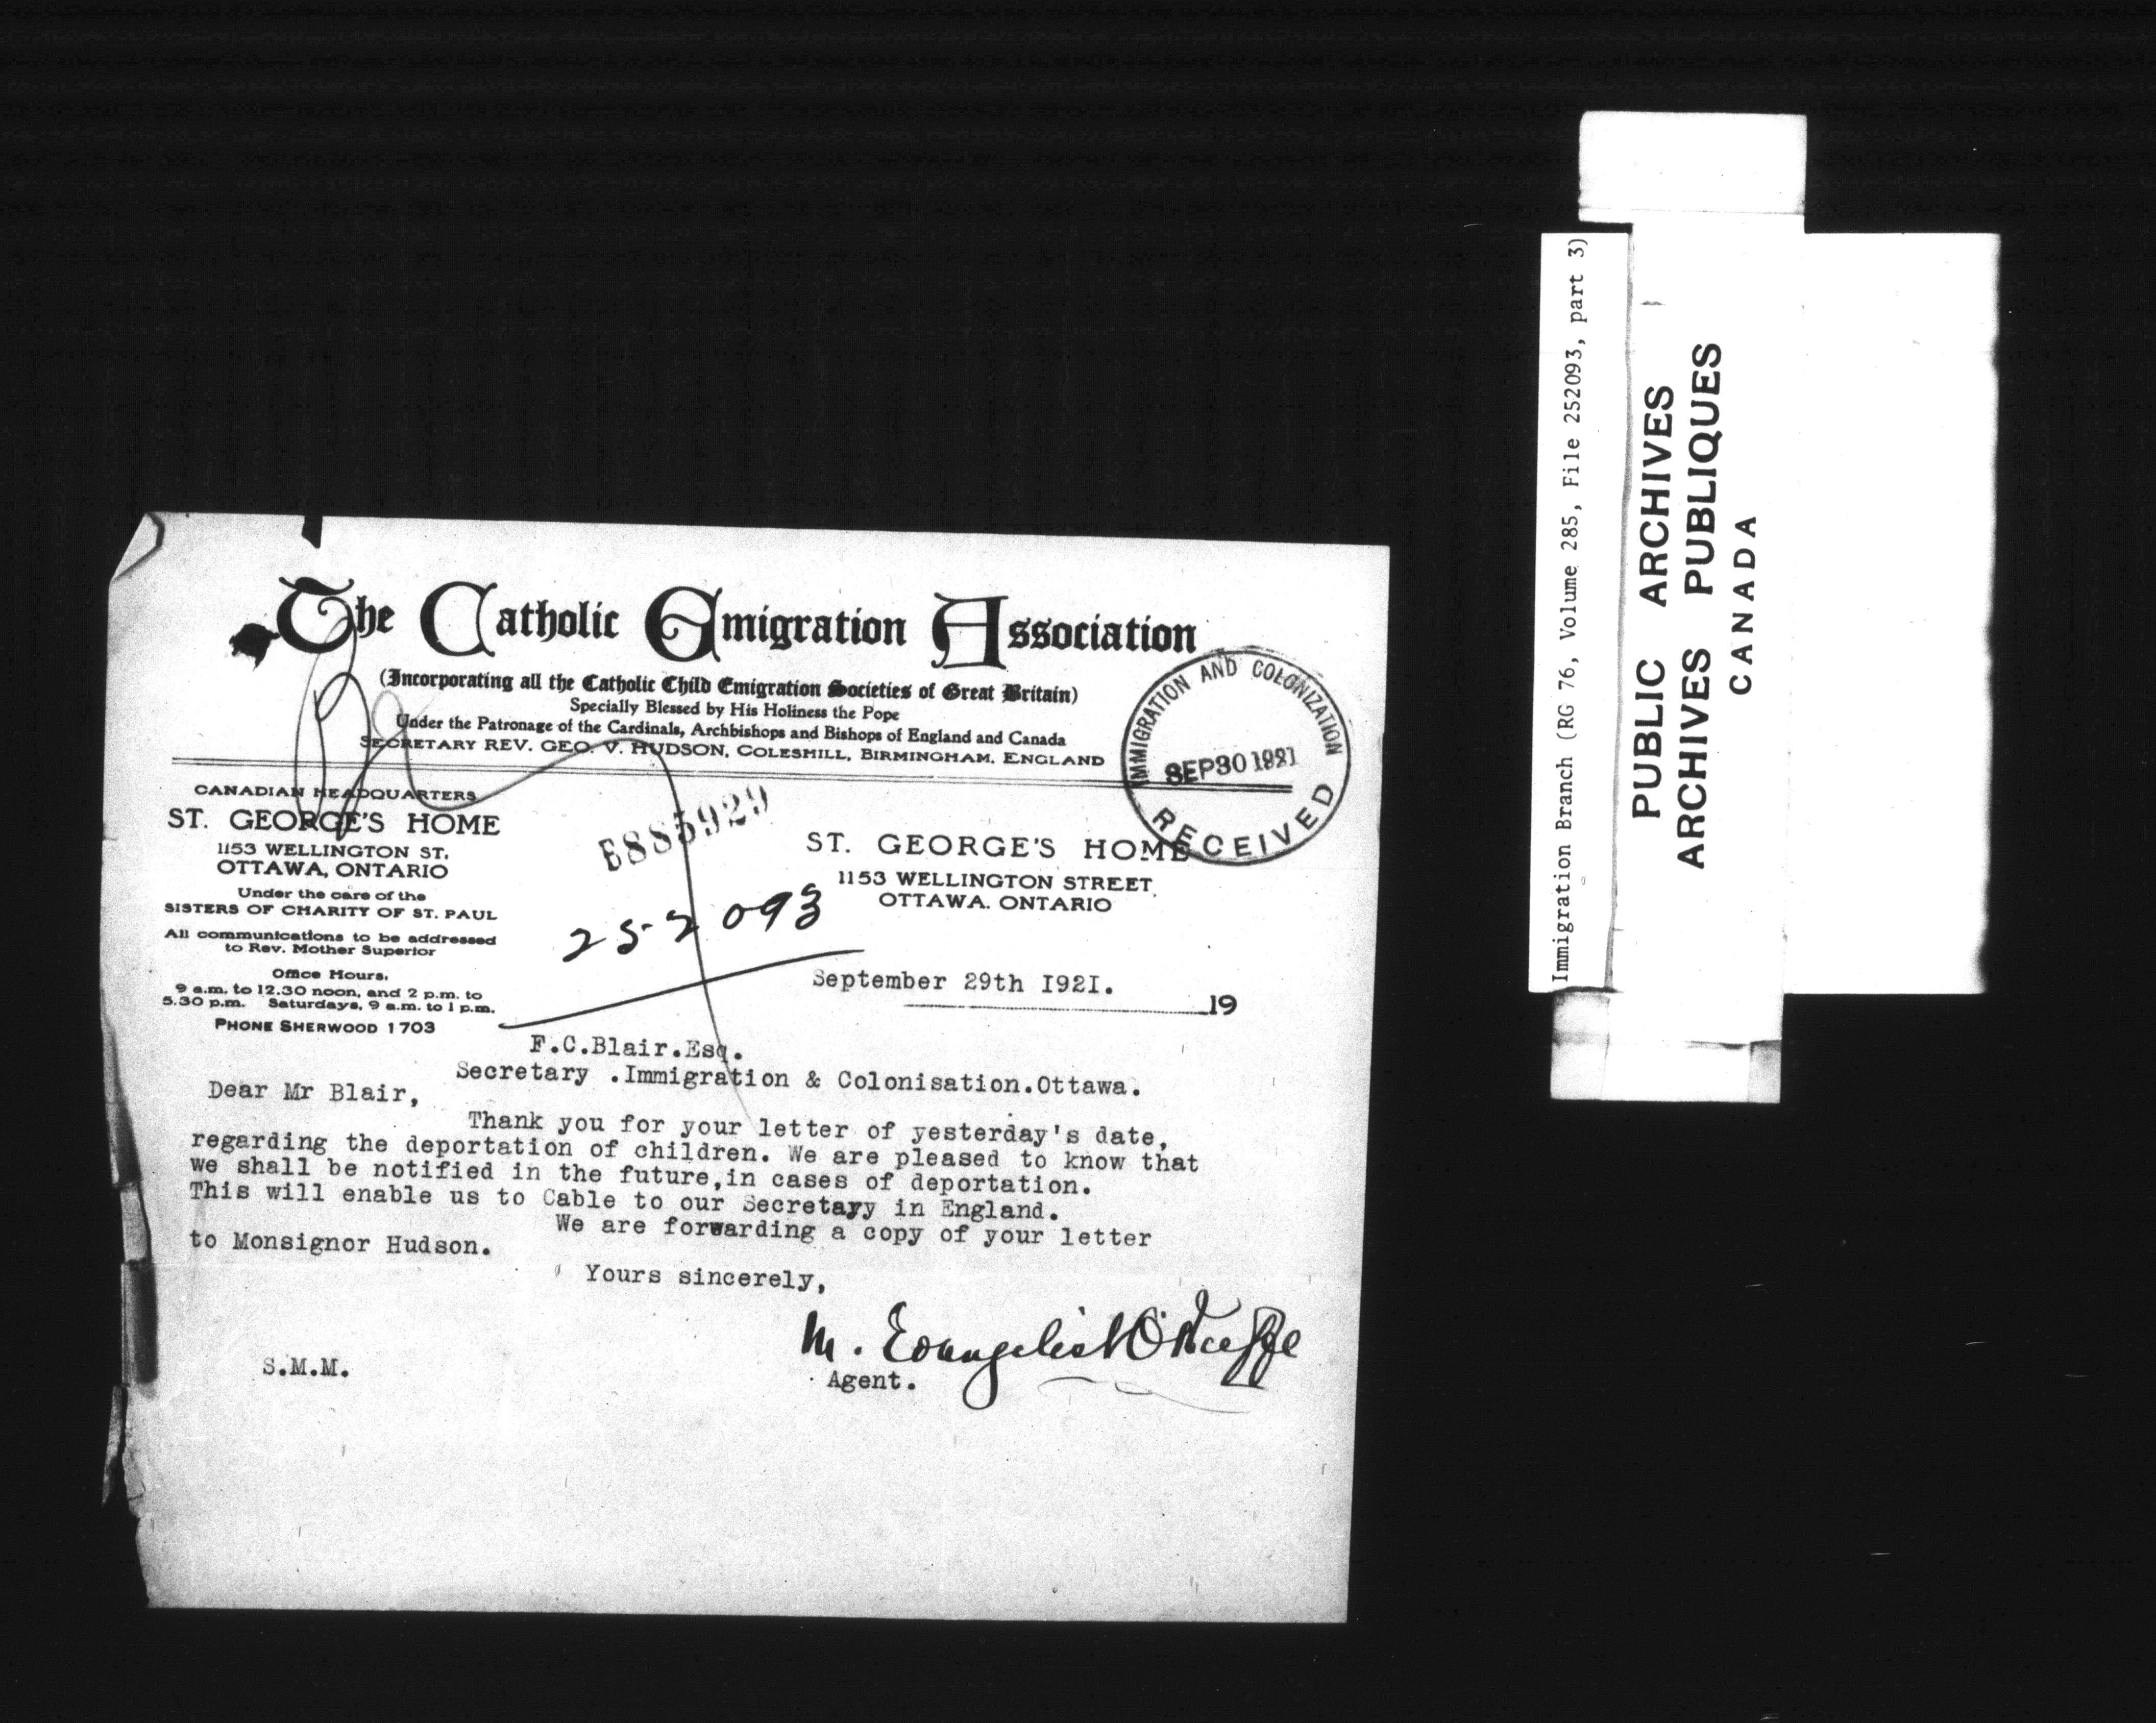 The Catholic Emigration Association
(Incorporating all the Catholic Child Emigration Societies of Great Britain)
Specially Blessed by His Holiness the Pope
Under the Patronage of the Cardinals, Archbishops and Bishops of England and Canada
SECRETARY REV. GEO. V. HUDSON, COLESHILL, BIRMINGHAM, ENGLAND
IMMIGRATION AND COLONIZATION
SEP 30 1921
RECEIVED
CANADIAN HEADQUARTERS
ST. GEORGE'S HOME
1153 WELLINGTON ST.
OTTAWA, ONTARIO
Under the care of the
SISTERS OF CHARITY OF ST. PAUL
All communications to be addressed
to Rev. Mother Superior
Office Hours,
9 a.m. to 12.30 noon, and 2 p.m. to
5.30 p.m. Saturdays, 9 a.m. to 1 p.m.
PHONE SHERWOOD 1703
E885929
252093
ST. GEORGE'S HOME
1153 WELLINGTON STREET
OTTAWA. ONTARIO
September 29th I92I.
19
F.C.Blair.Esq.
Secretary .Immigration & Colonisation.Ottawa.
Dear Mr Blair,
Thank you for your letter of yesterday's date,
regarding the deportation of children. We are pleased to know that
we shall be notified in the future,in cases of deportation.
This will enable us to Cable to our Secretayy in England.
We are forwarding a copy of your letter
to Monsignor Hudson.
Yours sincerely,
M. Evangelist O'Keeffe
Agent.
S.M.M.
Immigration Branch (RG 76, Volume 285, File 252093, part 3)
PUBLIC ARCHIVES
ARCHIVES PUBLIQUES
CANADA